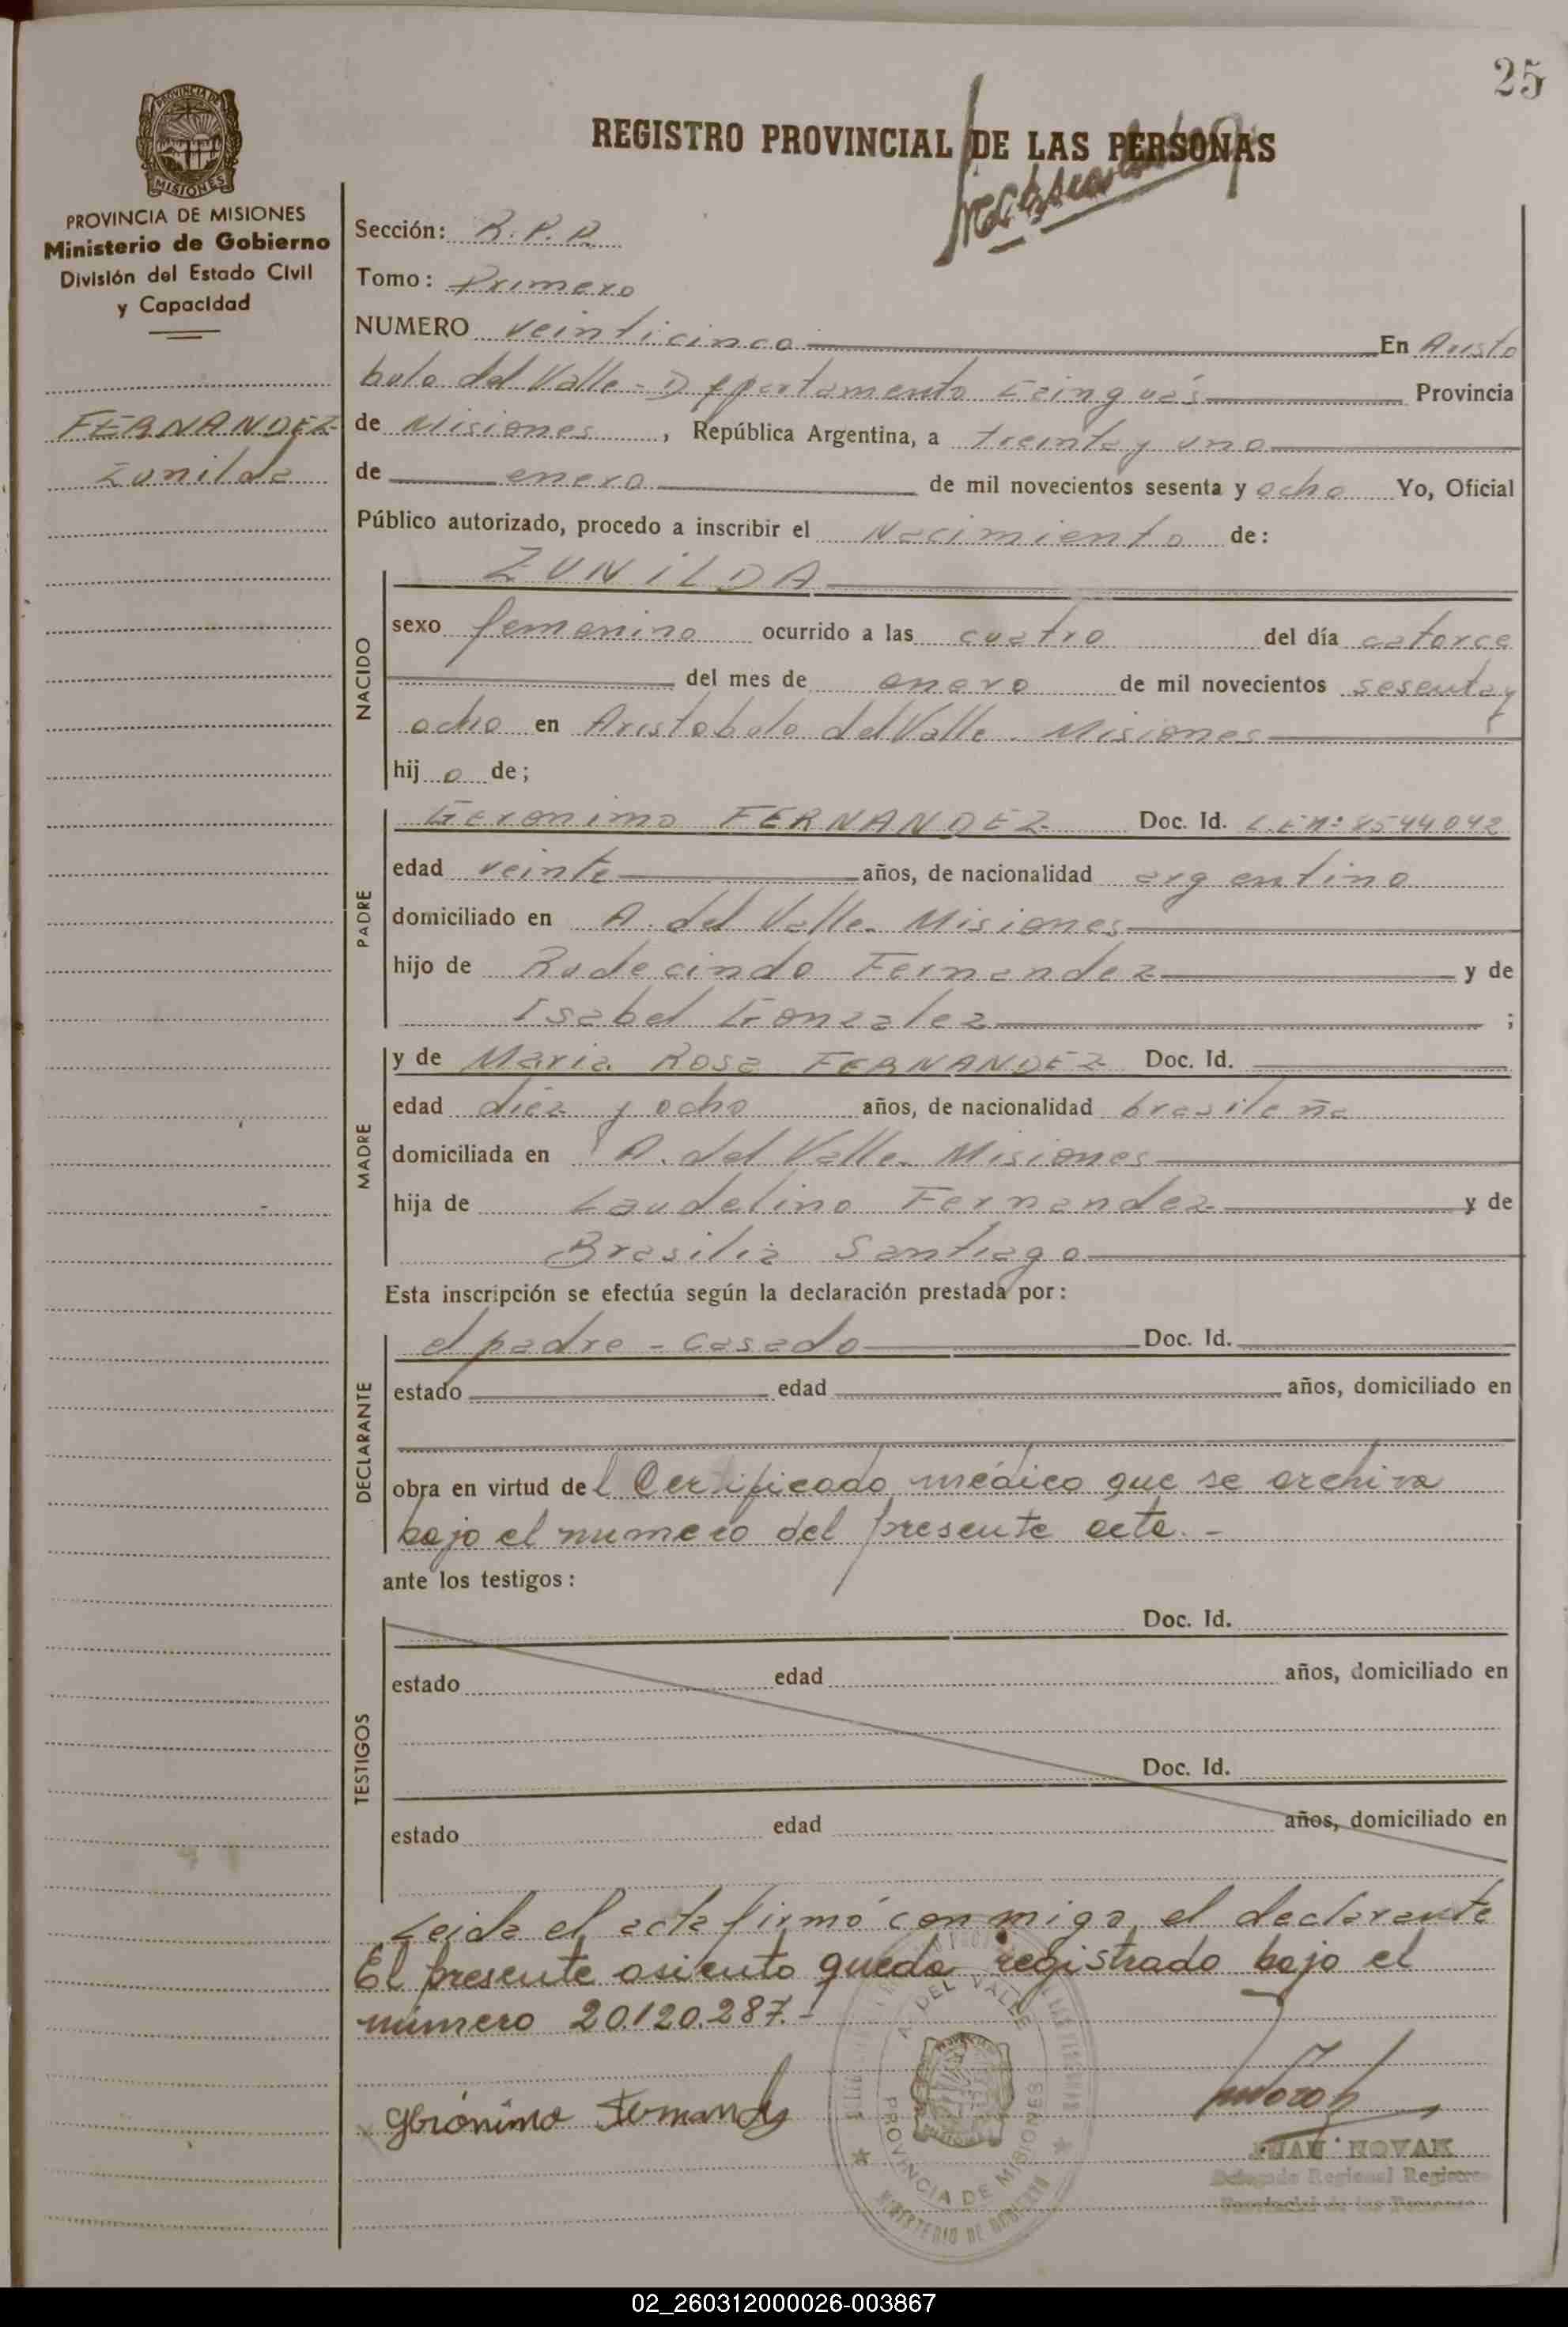 25
REGISTRO PROVINCIAL DE LAS PERSONAS
PROVINCIA DE
MISIONES
PROVINCIA DE MISIONES
Ministerio de Gobierno
División del Estado Civil
y Capacidad
FERNANDEZ
Zunilda
Sección: R. P. P.
Tomo: Primero
NUMERO veinticinco En Aristo
bulo del Valle - Departamento Cainguás Provincia
de Misiones, República Argentina, a treinta y uno
de enero de mil novecientos sesenta y ocho Yo, Oficial
Público autorizado, procedo a inscribir el Nacimiento de:
NACIDO
ZUNILDA
sexo femenino ocurrido a las cuatro del día catorce
del mes de enero de mil novecientos sesenta y
ocho en Aristobulo del Valle. Misiones
hijo de;
PADRE
Geronimo FERNANDEZ Doc. Id. L.E.n: 8544042
edad veinte años, de nacionalidad argentino
domiciliado en A. del Valle. Misiones
hijo de Rudecindo Fernandez y de
Isabel Gonzalez ;
MADRE
y de Maria Rosa FERNANDEZ Doc. Id.
edad diez y ocho años, de nacionalidad brasileña
domiciliada en A. del Valle. Misiones
hija de Laudelino Fernandez y de
Brasilia Santiago
Esta inscripción se efectúa según la declaración prestada por:
DECLARANTE
el padre - casado Doc. Id.
estado edad años, domiciliado en
obra en virtud del Certificado médico que se archiva
bajo el numero del presente acta. -
ante los testigos:
TESTIGOS
Doc. Id.
estado edad años, domiciliado en
Doc. Id.
estado edad años, domiciliado en
Leida el acta firmó conmigo, el declarante
El presente asiento queda registrado bajo el
número 20.120.287.-
Gerónimo Fernandez
A. DEL VALLE
PROVINCIA DE MISIONES
MINISTERIO DE GOBIERNO
JUAN NOVAK
Delegado Regional Registro
Provincial de las Personas
02_260312000026-003867